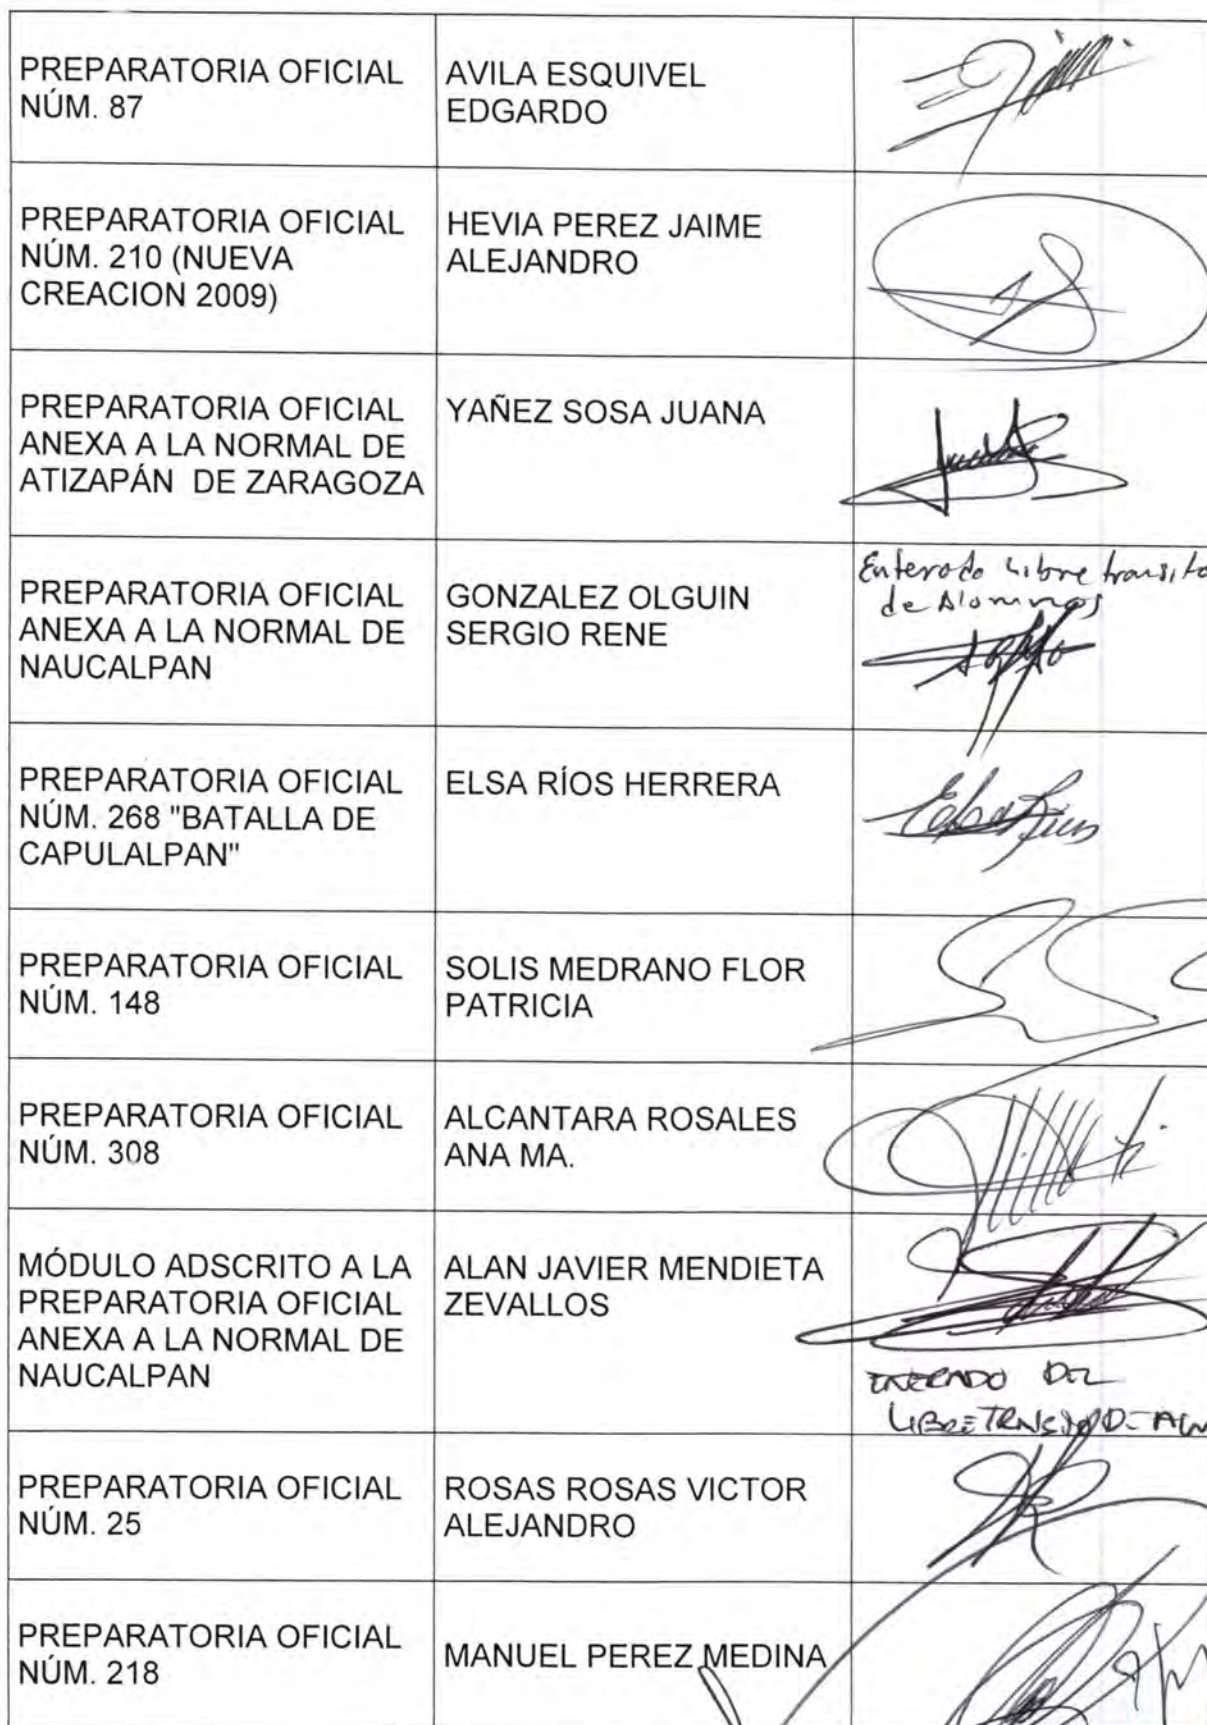 PREPARATORIA OFICIAL
NÚM. 87
AVILA ESQUIVEL
EDGARDO
PREPARATORIA OFICIAL
NÚM. 210 (NUEVA
CREACION 2009)
HEVIA PEREZ JAIME
ALEJANDRO
PREPARATORIA OFICIAL
ANEXA A LA NORMAL DE
ATIZAPÁN DE ZARAGOZA
YAÑEZ SOSA JUANA
PREPARATORIA OFICIAL
ANEXA A LA NORMAL DE
NAUCALPAN
GONZALEZ OLGUIN
SERGIO RENE
Enterado Libre transito
de Alumnos
PREPARATORIA OFICIAL
NÚM. 268 "BATALLA DE
CAPULALPAN"
ELSA RÍOS HERRERA
Elsa Ríos
PREPARATORIA OFICIAL
NÚM. 148
SOLIS MEDRANO FLOR
PATRICIA
PREPARATORIA OFICIAL
NÚM. 308
ALCANTARA ROSALES
ANA MA.
MÓDULO ADSCRITO A LA
PREPARATORIA OFICIAL
ANEXA A LA NORMAL DE
NAUCALPAN
ALAN JAVIER MENDIETA
ZEVALLOS
ENTERADO DEL
LIBRE TRANSITO DE
PREPARATORIA OFICIAL
NÚM. 25
ROSAS ROSAS VICTOR
ALEJANDRO
PREPARATORIA OFICIAL
NÚM. 218
MANUEL PEREZ MEDINA